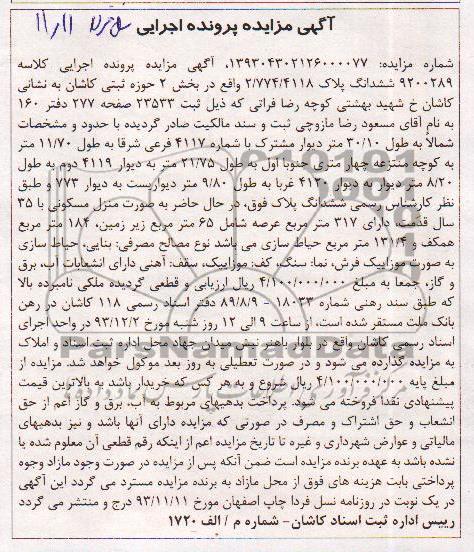 آگهی مزایده پرونده اجرایی
شماره مزایده: ۱۳۹۳۰۴۳۰۲۱۲۶۰۰۰۰۷۷، آگهی مزایده پرونده اجرایی کلاسه
۹۲۰۰۲۸۹ ششدانگ پلاک ۲/۷۷۴/۴۱۱۸ واقع در بخش ۲ حوزه ثبتی کاشان به نشانی
کاشان خ شهید بهشتی کوچه رضا فراتی که ذیل ثبت ۲۳۵۳۳ صفحه ۲۷۷ دفتر ۱۶۰
به نام آقای مسعود رضا مازوچی ثبت و سند مالکیت صادر گردیده با حدود و مشخصات
شمالاً به طول ۳۰/۱۰ متر دیوار مشترک با شماره ۴۱۱۷ فرعی شرقا به طول ۱۱/۷۰ متر
به کوچه منتزعه چهار متری جنوبا اول به طول ۲۱/۷۵ متر به دیوار ۴۱۱۹ دوم به طول
۸/۲۰ متر دیوار به دیوار ۴۱۲۰ غربا به طول ۹/۸۰ متر دیواریست به دیوار ۷۷۳ و طبق
نظر کارشناس رسمی ششدانگ پلاک فوق، در حال حاضر به صورت منزل مسکونی با ۳۵
سال قدمت، دارای ۳۱۷ متر مربع عرصه شامل ۶۵ متر مربع زیر زمین، ۱۸۴ متر مربع
همکف و ۱۳۱/۴ متر مربع حیاط سازی می باشد نوع مصالح مصرفی: بنایی، حیاط سازی
به صورت موزاییک فرش، نما: سنگ، کف: موزاییک، سقف: آهنی دارای انشعابات آب، برق
و گاز، جمعا به مبلغ ۴/۱۰۰/۰۰۰/۰۰۰ ریال ارزیابی و قطعی گردیده ملکی نامبرده بالا
که طبق سند رهنی شماره ۱۸۰۳۳ - ۸۹/۸/۹ دفتر اسناد رسمی ۱۱۸ کاشان در رهن
بانک ملت مستقر شده است، از ساعت ۹ الی ۱۲ روز شنبه مورخ ۹۳/۱۲/۲ در واحد اجرای
اسناد رسمی کاشان واقع در بلوار باهنر نبش میدان جهاد محل اداره ثبت اسناد و املاک
به مزایده گذارده می شود و در صورت تعطیلی به روز بعد موکول خواهد شد. مزایده از
مبلغ پایه ۴/۱۰۰/۰۰۰/۰۰۰ ریال شروع و به هر کس که خریدار باشد به بالاترین قیمت
پیشنهادی نقدا فروخته می شود. پرداخت بدهیهای مربوط به آب، برق و گاز اعم از حق
انشعاب و حق اشتراک و مصرف در صورتی که مزایده دارای آنها باشد و نیز بدهیهای
مالیاتی و عوارض شهرداری و غیره تا تاریخ مزایده اعم از اینکه رقم قطعی آن معلوم شده یا
نشده باشد به عهده برنده مزایده است ضمن آنکه پس از مزایده در صورت وجود مازاد وجوه
پرداختی بابت هزینه های فوق از محل مازاد به برنده مزایده مسترد می گردد این آگهی
در یک نوبت در روزنامه نسل فردا چاپ اصفهان مورخ ۹۳/۱۱/۱۱ درج و منتشر می گردد
رییس اداره ثبت اسناد کاشان- شماره م / الف ۱۷۲۰
ParsNamadData